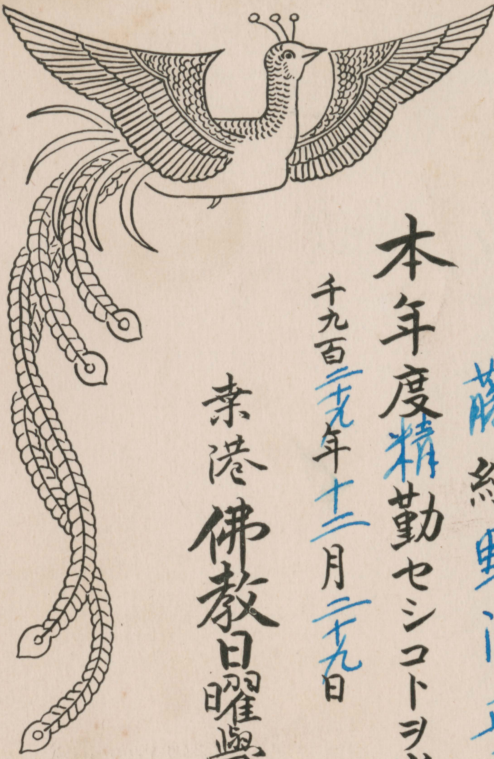 本年度精勤セシコトヲ
千九百二十九年十二月二十九日
桒港佛教日曜學